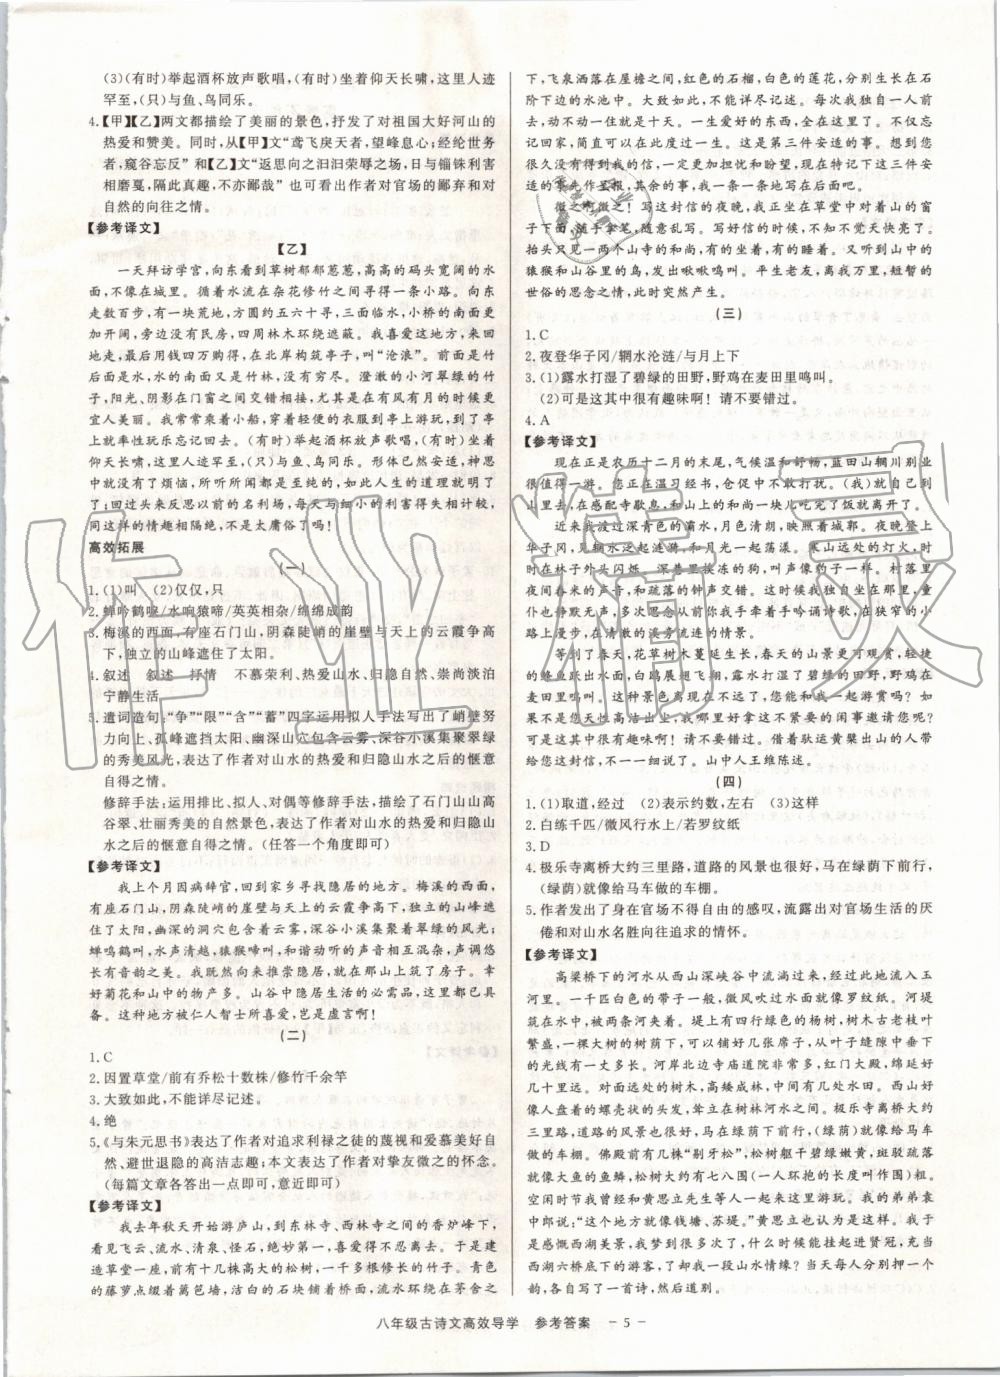 (3)(有时)举起酒杯放声歌唱,(有时)坐着仰天长啸,这里人迹
罕至,(只)与鱼、鸟同乐。
4.【甲】【乙】两文都描绘了美丽的景色,抒发了对祖国大好河山的
热爱和赞美。同时,从【甲】文“鸢飞戾天者,望峰息心;经纶世务
者,窥谷忘反”和【乙】文“返思向之汩汩荣辱之场,日与锱铢利害
相磨戛,隔此真趣,不亦鄙哉”也可看出作者对官场的鄙弃和对
自然的向往之情。
【参考译文】
【乙】
一天拜访学宫,向东看到草树郁郁葱葱,高高的码头宽阔的水
面,不像在城里。循着水流在杂花修竹之间寻得一条小路。向东
走数百步,有一块荒地,方圆约五六十寻,三面临水,小桥的南面更
加开阔,旁边没有民房,四周林木环绕遮蔽。我喜爱这地方,来回
地走,最后用钱四万买下它,在北岸构筑亭子,叫“沧浪”。前面是竹
后面是水,水的南面又是竹林,没有穷尽。澄澈的小河翠绿的竹
子,阳光,阴影在门窗之间交错相接,尤其是在有风有月的时候更
宜人美丽。我常常乘着小船,穿着轻便的衣服到亭上游玩,到了亭
上就率性玩乐忘记回去。(有时)举起酒杯放声歌唱,(有时)坐着
仰天长啸,这里人迹罕至,(只)与鱼、鸟同乐。形体已然安适,神思
中就没有了烦恼,所听所闻都是至纯的,如此人生的道理就明了
了;回过头来反思以前的名利场,每天与细小的利害得失相计较,
同这样的情趣相隔绝,不是太庸俗了吗!
高效拓展
(一)
1.(1)叫 (2)仅仅,只
2.蝉吟鹤唳/水响猿啼/英英相杂/绵绵成韵
3.梅溪的西面,有座石门山,阴森陡峭的崖壁与天上的云霞争高
下,独立的山峰遮住了太阳。
4.叙述 叙述 抒情 不慕荣利、热爱山水、归隐自然、崇尚淡泊
宁静生活
5.遣词造句:“争”“限”“含”“蓄”四字运用拟人手法写出了峭壁努
力向上、孤峰遮挡太阳、幽深山穴包含云雾、深谷小溪集聚翠绿
的秀美风光,表达了作者对山水的热爱和归隐山水之后的惬意
自得之情。
修辞手法:运用排比、拟人、对偶等修辞手法,描绘了石门山山高
谷翠、壮丽秀美的自然景色,表达了作者对山水的热爱和归隐山
水之后的惬意自得之情。(任答一个角度即可)
【参考译文】
我上个月因病辞官,回到家乡寻找隐居的地方。梅溪的西面,
有座石门山,阴森陡峭的崖壁与天上的云霞争高下,独立的山峰遮
住了太阳,幽深的洞穴包含着云雾,深谷小溪集聚着翠绿的风光;
蝉鸣鹤叫,水声清越,猿猴啼叫,和谐动听的声音相互混杂,声调悠
长有音韵之美。我既然向来推崇隐居,就在那山上筑了房子。幸
好菊花和山中的物产多。山谷中隐居生活的必需品,这里都已具
备。这种地方被仁人智士所喜爱,岂是虚言啊!
(二)
1.C
2.因置草堂/前有乔松十数株/修竹千余竿
3.大致如此,不能详尽记述。
4.绝
5.《与朱元思书》表达了作者对追求利禄之徒的蔑视和爱慕美好自
然、避世退隐的高洁志趣;本文表达了作者对挚友微之的怀念。
(每篇文章各答出一点即可,意近即可)
【参考译文】
我去年秋天开始游庐山,到东林寺、西林寺之间的香炉峰下,
看见飞云、流水、清泉、怪石,绝妙第一,喜欢得不舍得离开。于是建
造草堂一座,前有十几株高大的松树,一千多根修长的竹子。青色
的藤萝点缀着篱笆墙,洁白的石块铺着桥面,流水环绕在茅舍之
下,飞泉洒落在屋檐之间,红色的石榴,白色的莲花,分布生长在石
阶下边的水池中。大致如此,不能详尽记述。每次我独自一人前
去,动不动一住就是十天。一生爱好的东西,全在这里了。不仅忘记
回家,简直可以在这里过一辈子。这是第三件安适的事。想到您
很久没有得到我的信,一定更加担忧和盼望,现在特记下这三件安
适的事先作呈报,其余的事,我一条一条地写在后面吧。
微之啊微之!写这封信的夜晚,我是在草堂中对着山的窗
子下面,随手拿笔,随意乱写。写好信的时候,不知不觉天快亮了。
抬头只见一两个山寺的和尚,有的坐着,有的睡着。又听到山中的
猿猴和山谷里的鸟,发出啾啾鸣叫。平生老友,离我万里,短暂的
世俗的思念之情,此时突然产生。
(三)
1.C
2.夜登华子冈/辋水沦涟/与月上下
3.(1)露水打湿了碧绿的田野,野鸡在麦田里鸣叫。
(2)可是这其中很有趣味啊!请不要错过。
4.A
【参考译文】
现在正是农历十二月的末尾,气候温和舒畅,蓝田山辋川别业
很值得一游。您正在温习经书,仓促中不敢打扰。(我)就自行到山
里,在感配寺歇息,和寺中山僧一块儿吃完了饭就离开了。
近来我渡过深青色的灞水,月色清朗,映照着城郭。夜晚登上
华子冈,见辋水泛起涟漪,和月光一起荡漾。寒山远处的灯火,时
时在林子外头闪烁。深巷里挨冻的狗,叫声像豹子一样。村落里
夜间舂米的声音,和夜里疏落的钟声交错。这时候我独自坐在那里,童
仆也静默无声,多次思念从前你我二人携着手吟诵诗歌,在狭窄的小
路上漫步,在清澈的溪旁流连的情景。
等到了春天,花草树木蔓延生长,春天的山景更可观赏,轻捷
的鲦鱼跃出水面,白鸥展翅飞翔,露水打湿了碧绿的田野,野鸡在
麦田里鸣叫。这些离现在不远了,您能和我一起游赏吗?如
果不是您天性高洁出尘,我哪能拿这不紧要的闲事邀请您呢?
可是这其中很有趣味啊!请不要错过。借着驮运黄檗出山的人带
给您这封信,不一一细说了。山中人王维陈述。
(四)
1.(1)取道,经过 (2)表示约数,左右 (3)这样
2.白练千匹/微风行水上/若罗纹纸
3.D
4.极乐寺离桥大约三里路,道路的风景也很好,马在绿荫下前行,
(绿荫)就像给马车做的车棚。
5.作者发出了身在官场不得自由的感叹,流露出对官场生活的厌
倦和对山水名胜向往追求的情怀。
【参考译文】
高梁桥下的河水从西山深峡谷中流淌过来,经过此地流入玉
河里。一千匹白色的带子一般,微风吹过水面就像罗纹纸。河堤
筑在水中,被两条河夹着。堤上有四行绿色的杨树,树木古老枝叶
繁盛,一棵大树的树荫下,可以铺好几张席子,从叶子缝隙中垂下
的枝条有好几丈长。河岸北边寺庙道院非常多,红门大殿,绵延好
几十里。对面远处的树木,高矮成林,中间还有水田。西山像
像人盘着的螺壳状的头发,耸立在树林河水之间。极乐寺离桥大约
三里路,道路的风景也很好,马在绿荫下前行,(绿荫)就像给马车
做的车棚。佛殿前有几棵“剔牙松”,松树躯干翠绿嫩黄,斑驳鼓就
像大鱼的鱼鳞,松树大约有七八围(一人环抱的长度叫作围)粗。
空闲时节我曾经和黄思立先生等人一起来这里游玩。我的弟弟袁
中郎说:“这个地方就像钱塘、苏堤。”黄思立也认为是这样。我于
是感慨西湖美景,我梦见很多次了,什么时候能挂起进贤冠,充当
西湖六桥底下的游客,了却我一段山水情缘?当天每人分押一个
韵,各自写了一首诗,然后道别。
八年级古诗文高效导学 参考答案 - 5 -
作业精灵